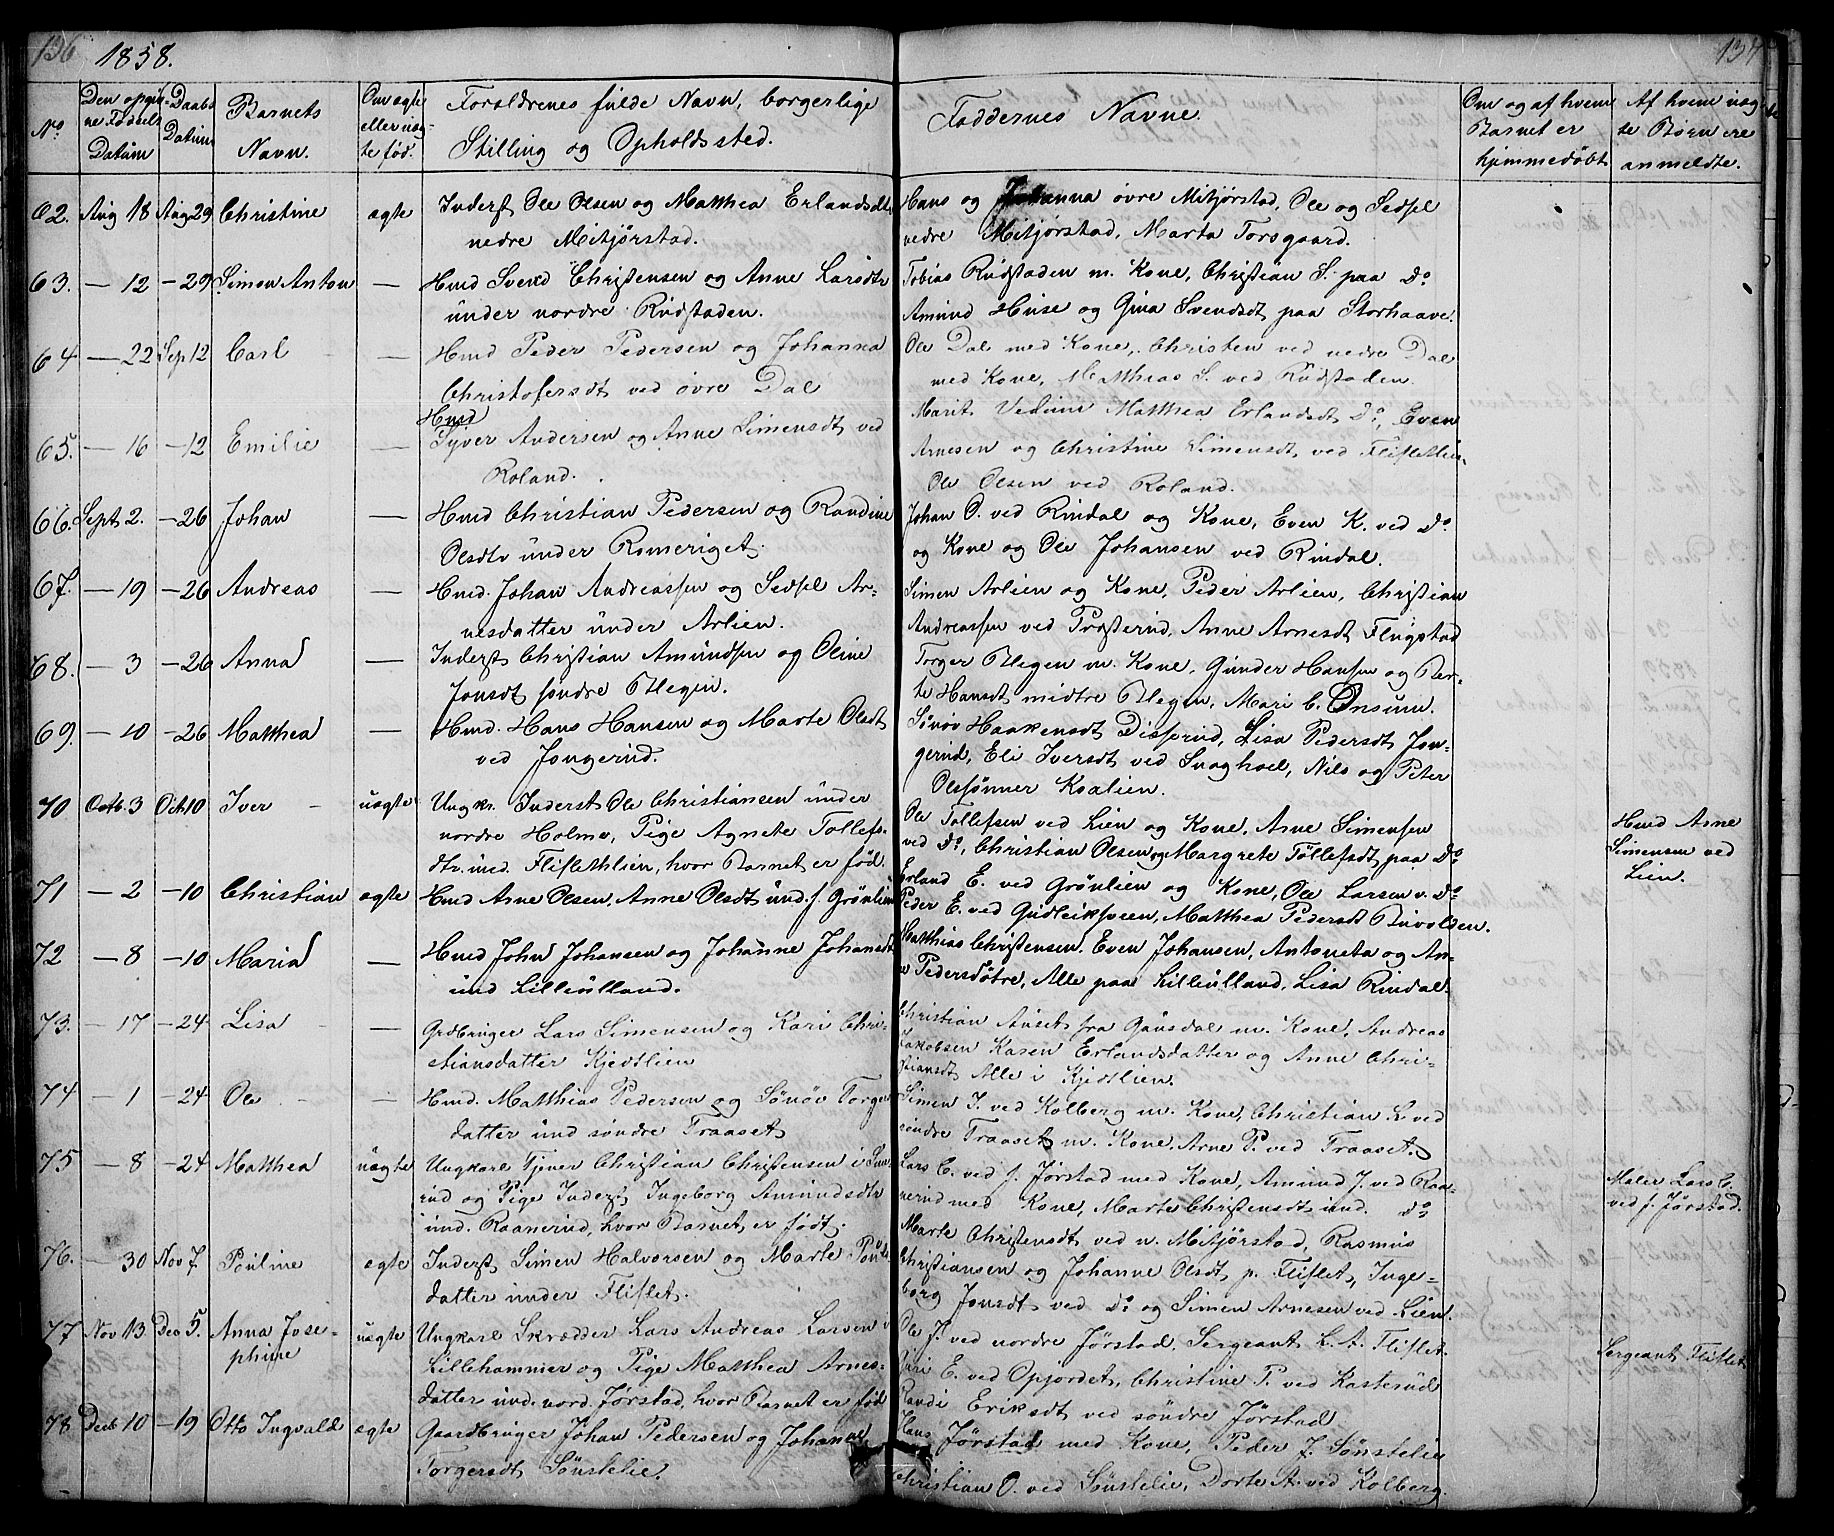 136
1858.
137
No.
Den opgiv-
ne Fødsels
Datum
Daabs
Datum
Barnets
Navn.
Om ægte
eller uæg-
te fød.
Forældrenes fulde Navn, borgerlige
Stilling og Opholdssted.
Faddernes Navne.
Om og af hvem
Barnet er
hjemmedøbt
Af hvem uæg
te Børn ere
anmeldte.
62. Aug 18 Aug 29 Christine ægte Inderst Ole Olsen og Matthea Erlandsdtr
nedre Mitjørstad.
Hans og Johanna øvre Mitjørstad, Ole og Sedsel
nedre Mitjørstad, Marta Torsgaard.
63. — 12 — 29 Simon Anton — Hmd Svend Christensen og Anne Larsdtr
under nordre Rudstaden.
Tobias Rudstaden m. Kone, Christian S. paa Do
Amund Huse og Gina Svendsdt paa Storhaave.
64 — 22 Sep 12 Carl — Hmd Peder Pedersen og Johanna
Christofersdt ved øvre Dal
Ole Dal med Kone, Christen ved nedre Dal
med Kone, Matthias S. ved Rudstaden.
65. — 16 — 12 Emilie — Hmd
Syver Andersen og Anne Simensdt ved
Roland.
Marit Vedum Matthea Erlandsdt, Do, Even
Arnesen og Christine Simensdt, ved Flifletlie-
Ole Olsen ved Roland.
66. Sept 2. — 26 Johan — Hmd Christian Pedersen og Randine
Olsdtr under Romeriget.
Johan O. ved Rindal og Kone, Even K. ved Do
og Kone og Ole Johansen ved Rindal.
67. — 19 — 26 Andreas — Hmd. Johan Andreassen og Sedsel Ar-
nesdatter under Arlien.
Simen Arlien og Kone, Peder Arlien, Christian
Andreassen ved Prøsterud, Anne Arnesdt Flugstad
68. — 3 — 26 Anna — Inderst Christian Amundsen og Oline
Jonsdt søndre Flegen.
Torger Flegen m. Kone, Gunder Hansen og Ber-
te Hansdt midtre Flegen, Mari C. Onsum.
69. — 10 — 26 Matthea — Hmd. Hans Hansen og Marte Olsdt
ved Jongerud.
Sønøv Haakensdt Disserud, Lisa Pedersdt Jon-
gerud, Eli Iversdt ved Snaghoel, Nils og Peter
Olesønner Koalien.
70 Octb. 3 Oct 10 Iver — uægte Ungkr. Inderst Ole Christiansen under
nordre Holme, Pige Agnete Tollefs-
dtr. und. Fliflethlien, hvor Barnet er fød.
Ole Tollefsen ved Lien og Kone, Arne Simensen
ved Do, Christian Olsen og Margrete Tollefsdt paa Do
Hmd Arne
Simensen ved
Lien.
71 — 2 — 10 Christian ægte Hmd Arne Olsen, Anne Olsdt und. s. Grønlien
Erland E. ved Grønlien og Kone, Ole Larsen v. Do
Peder E. ved Gudleiksveen, Matthea Pedersdt Buvolden.
72 — 8 — 10 Maria — Hmd John Johansen og Johanne Johansdt
und Lilleulland.
Matthias Christensen. Even Johansen, Antoneta og An-
n Pedersdøtre, Alle paa Lilleulland, Lisa Rindal-
73. — 17 — 24 Lisa — Grdbruger Lars Simensen og Kari Chri-
stiansdatter Kjedtlien
Christian Auset fra Gausdal m. Kone, Andreas
Jakobsen Karen Erlandsdatter og Anne Chri-
stiansdt Alle i Kjedtlien.
74 — 1 — 24 Ole — Hmd. Matthias Pedersen og Sønøv Torger
datter und søndre Traaset
Simen J. ved Kolberg m. Kone, Christian L. ved
søndre Traaset m. Kone, Arne P. ved Traaset.
75 — 8 — 24 Matthea uægte Ungkarl Tjener Christian Christensen i Sun-
rud og Pige Inderst Ingeborg Amundsdtr
und. Raanerud, hvor Barnet er født.
Lars C. ved s. Jørstad med Kone, Amund J. ved Raa-
nerud med Kone, Marte Christensdt und. Do
Maler Lars C.
ved s. Jørstad.
76. — 30 Nov 7 Pauline ægte Inderst Simen Halvorsen og Marte Pouls-
datter under Fliflet.
Marte Christensdt ved n. Mitjørstad, Rasmus
Christiansen og Johanne Olsdt p. Fliflet, Inge-
borg Jonsdt ved Do og Simen Arnesen ved Lien.
77 Nov 13 Dec 5. Anna Jose-
phine uægte Ungkarl Skrædder Lars Andreas Larsen v
Lillehammer og Pige Matthea Arnes-
datter und. nord. Jørstad, hvor Barnet er fød
Ole J. ved nordre Jørstad, Sergeant L. A. Fliflet.
Guri E. ved Opjordet, Christine P. ved Kasterud
Randi Eriksdt ved søndre Jørstad
Sergeant Fliflet
78. Decb 10 — 19 Otto Ingvald ægte Gaardbruger Johan Pedersen og Johanne
Torgersdt Sønstelie.
Hans Jørstad med Kone, Peder J. Sønstelie
Christian O. ved Sønstelie, Dorte A. ved Kolberg.